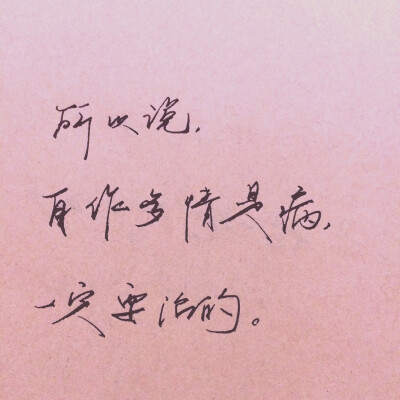 所以说,
自作多情是病,
一定要治的。